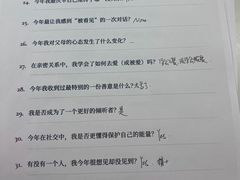 25. 今年最让我感到“被看见”的一次对话？Now
26. 今年我对父母的心态发生了什么变化？
27. 在亲密关系中，我学会了如何去爱（或被爱）吗？
28. 今年我收到过最特别的一份善意是什么？
29. 我是否成为了一个更好的倾听者？是
30. 今年在社交中，我是否更懂得保护自己的能量？Yes
31. 有没有一个人，我今年很想见却没见到？Yes